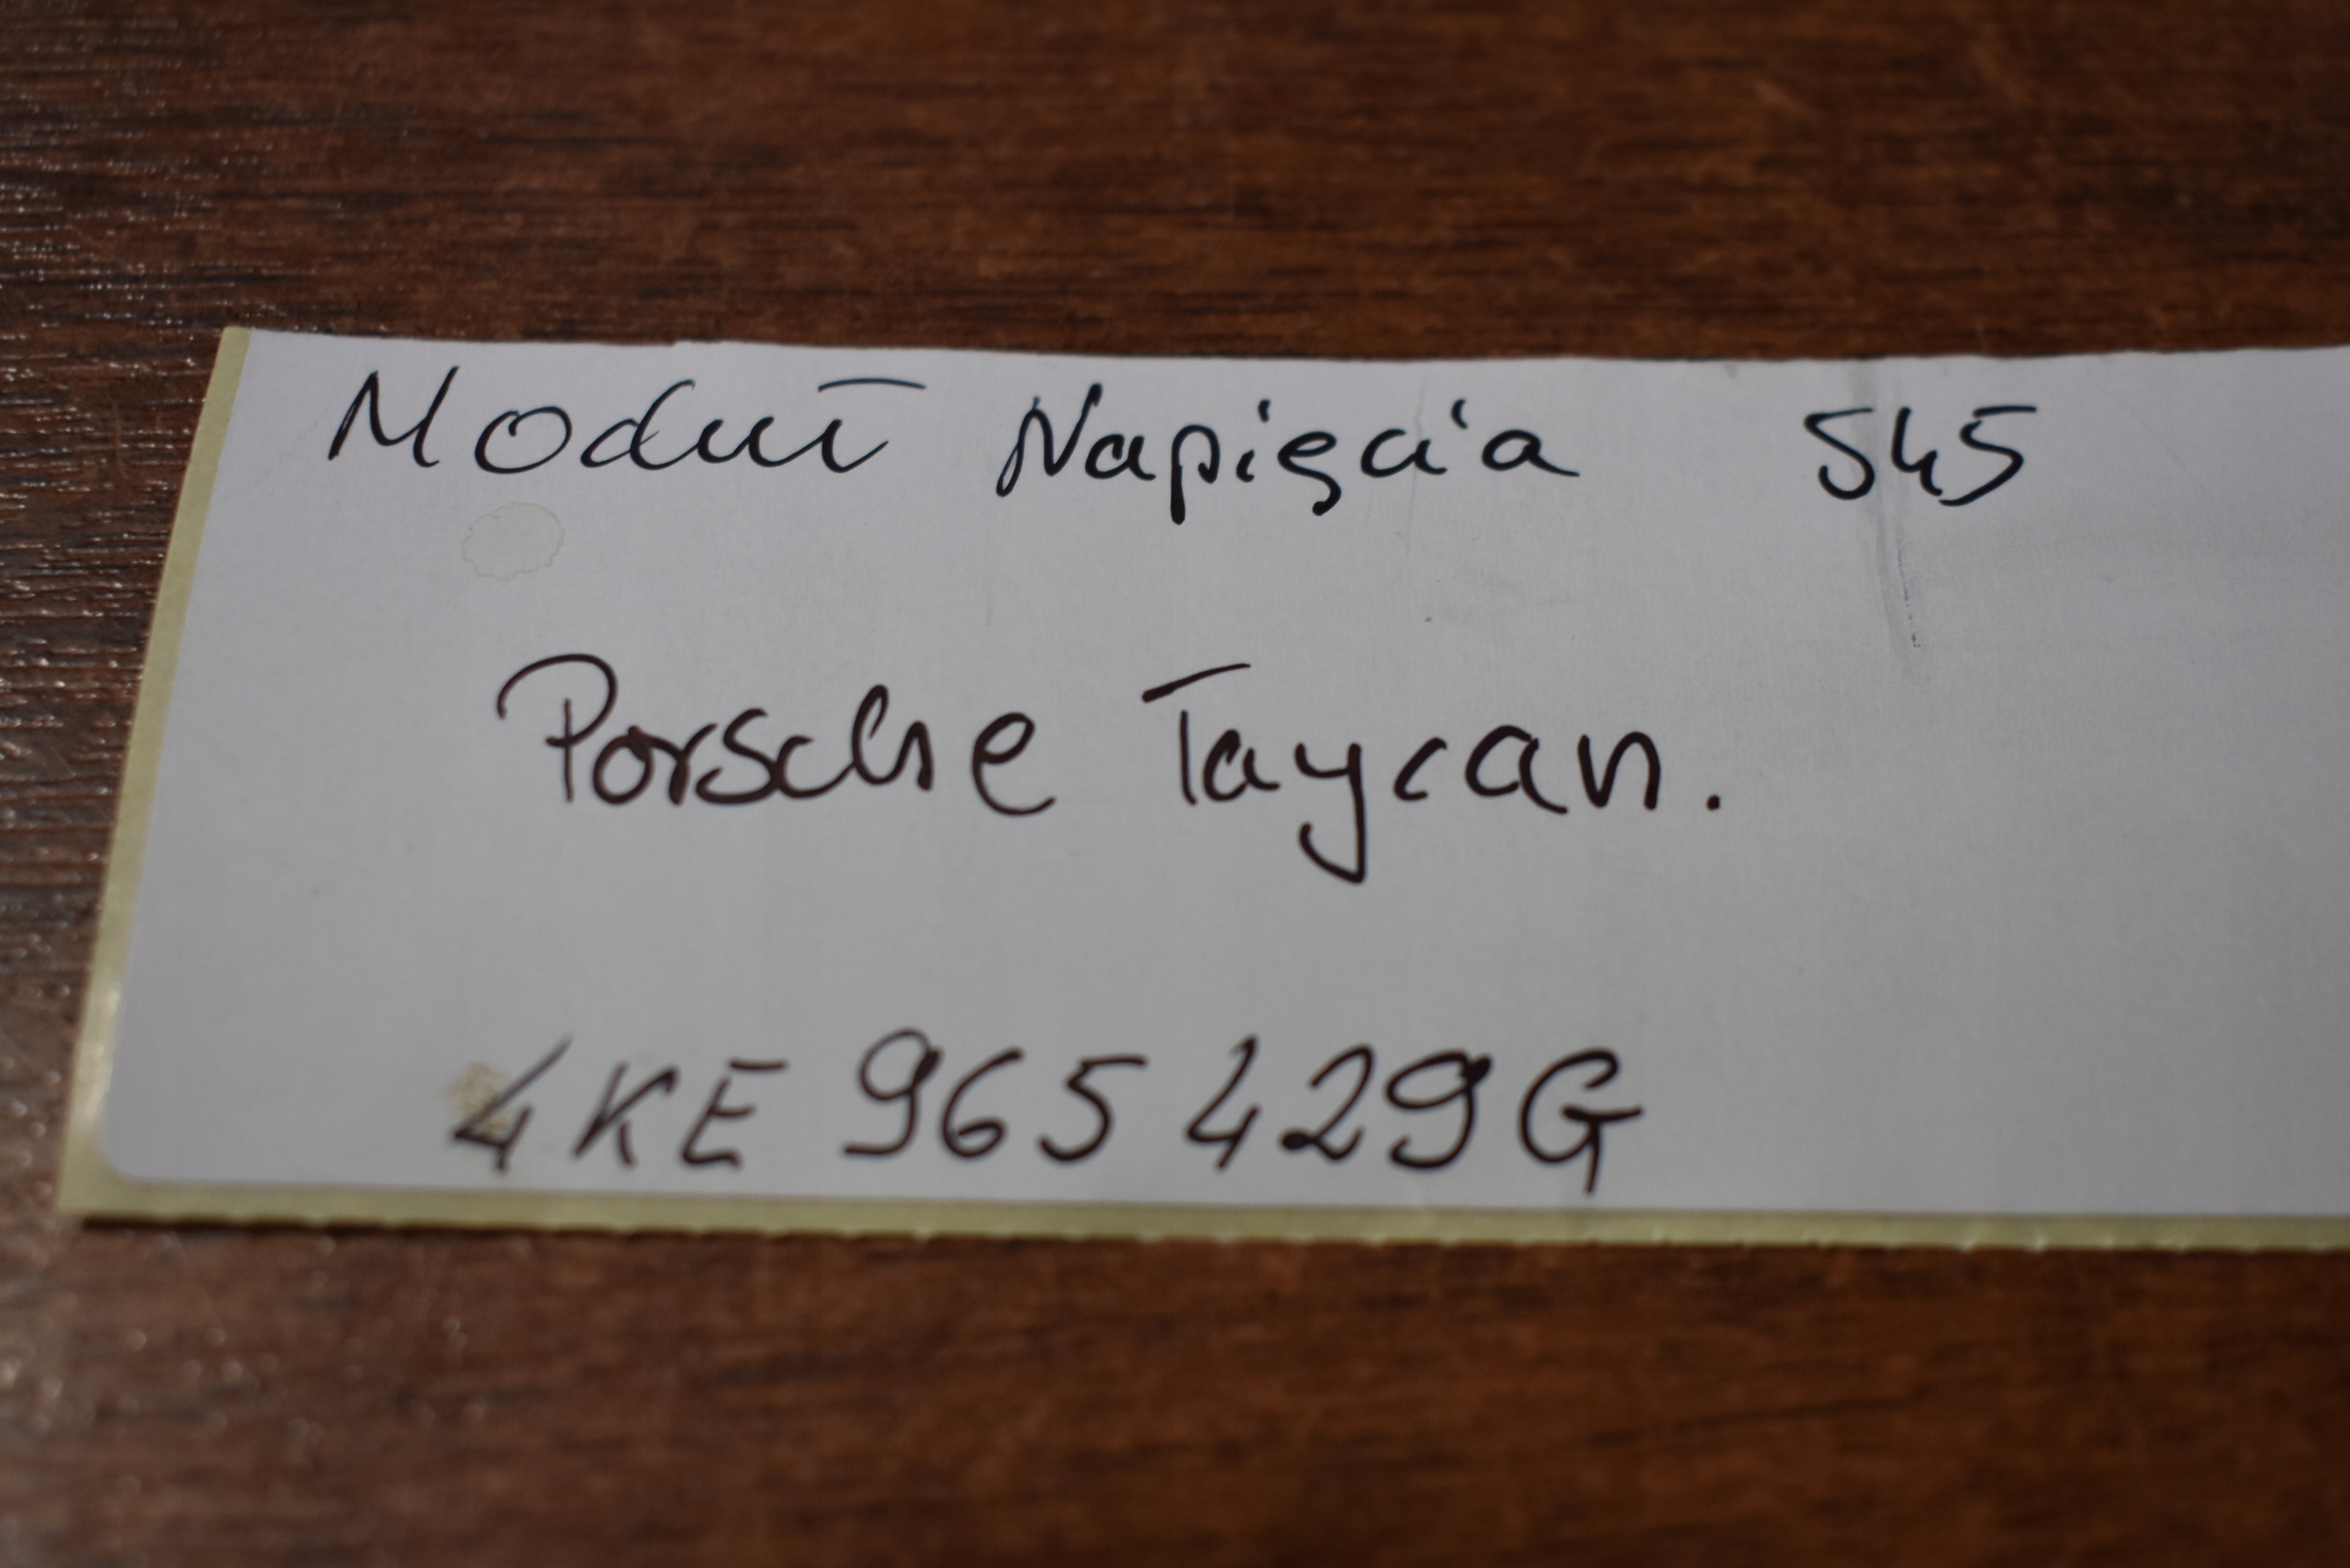 Moduł Napięcia 545
Porsche Taycan.
4KE 965 429G